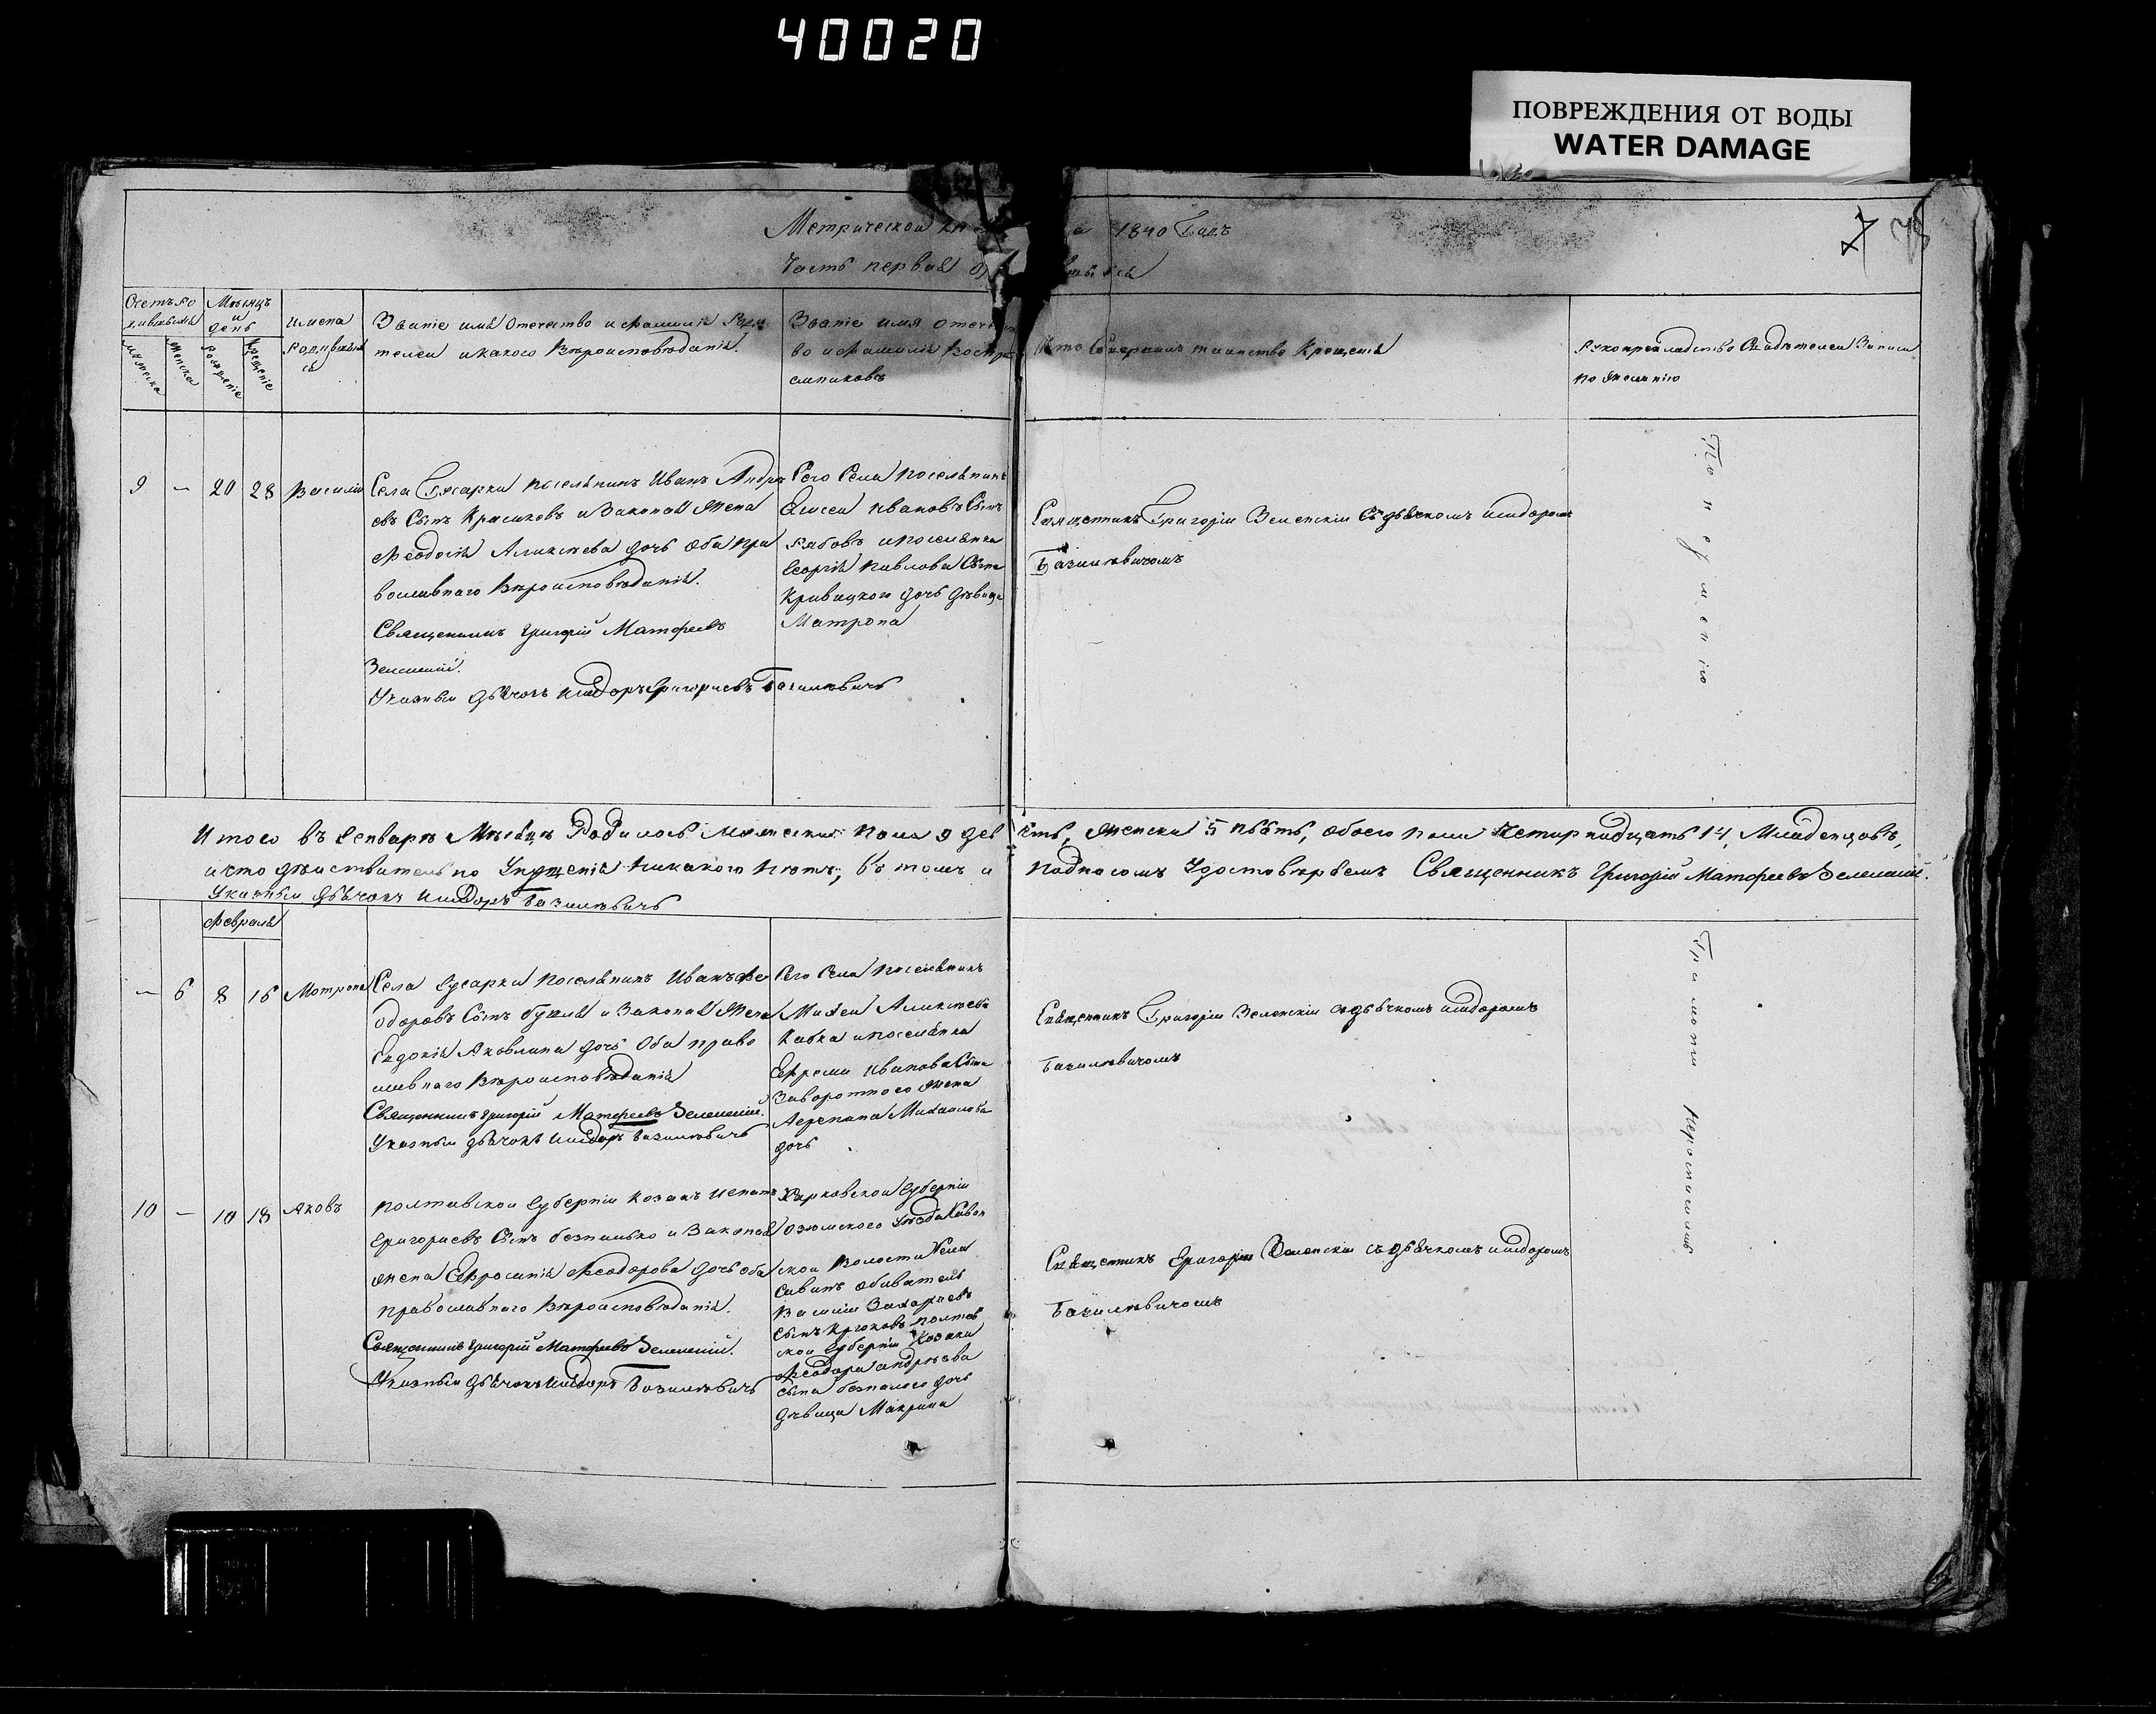 40020
ПОВРЕЖДЕНИЯ ОТ ВОДЫ
WATER DAMAGE
Метрической
1840 Годъ
Часть первая
Счетъ ро
Мѣсяцъ
и
день
Имена
Званіе имя Отечество и Фамилія Роди
Званіе имя отечест
Кто Совершилъ таинство Крещенія
Рукоприкладство Свидѣтелей Записи
мужеска
женска
рожденіе
крещеніе
телей и какого Вѣроисповѣданія.
во и Фамилія Воспрі
емниковъ
по Желанію
9 — 20 28 Василій
Села Гусарки поселянинъ Иванъ Андре
евъ Сынъ Красиковъ и Законая Жена
Феодосія Аликсѣева дочь Оба пра
вославнаго Вѣроисповѣданія.
Священникъ Григорій Матфеевъ
Зеленскій.
Указный дьячокъ Исидоръ Григориевъ Базилѣвичь
Сего Села поселянинъ
Елисей Ивановъ Сынъ
Рябовъ и поселянка
Георгія Павлова Сына
Кривицкого дочь дѣвица
Матрона
Священникъ Григорій Зеленскій Съ дьячкомъ исидоромъ
Базилѣвичомъ
По неуменію
Итого въ Генварѣ Мѣсяцѣ Родилось Мужеска пола 9 дев
ять, Женска 5 пьять, обоего пола Четирнадцать 14, Младенцовъ,
и что дѣиствительно Упущенія никакого нѣтъ, въ томъ и
подписомъ Удостовѣряемъ Священникъ Григорій Матфеевъ Зеленский.
Указный дьячокъ Исидоръ Базилѣвичь
Февраля
— 6 8 16 Мотрона
Села Гусарки поселянинъ Иванъ Фе
одоровъ Сынъ и Законая Жена
Евдокія Яковлина дочь Оба право
славнаго Вѣроисповѣданія
Священникъ Григорій Матфеевъ Зеленский.
Указный дьячокъ Исидоръ Базилѣвичь
Сего Села поселянинъ
Михеи Аликсѣевъ
Кавка и поселянка
Ефрема Иванова Сына
Заворотного Жена
Агрепина Михаилова
дочь
Священникъ Григорій Зеленскій съ дьячкомъ исидоромъ
Базилѣвичомъ
Грамоти
10 — 10 18 Яковъ
Полтавской Губерніи Козакъ Игнатъ
Григориевъ Сынъ безпалько и Законая
Жена Ефросинія Феодорова дочь оба
православнаго Вѣроисповѣданія.
Священникъ Григорій Матфеевъ Зеленский.
Указный дьячокъ Исидоръ Базилѣвичь
Харковской Губерніи
Узюмского Уѣзда
ской Волости
обиватель
Василій Захариевъ
Сынъ Крюковъ Полтав
ской Губерніи Козака
Феодора андрѣева
Сына безпалого дочь
дѣвица Макрина
Священникъ Григорій Зеленскій съ дьячкомъ исидоромъ
Базилѣвичомъ